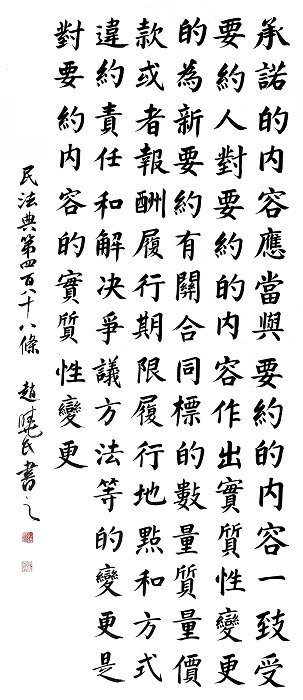 承諾的内容應當與要約的内容一致受
要約人對要約的内容作出實質性變更
的為新要約有關合同標的數量質量價
款或者報酬履行期限履行地點和方式
違約責任和解決爭議方法等的變更是
對要約内容的實質性變更
民法典第四百八十八條 趙曉民書之